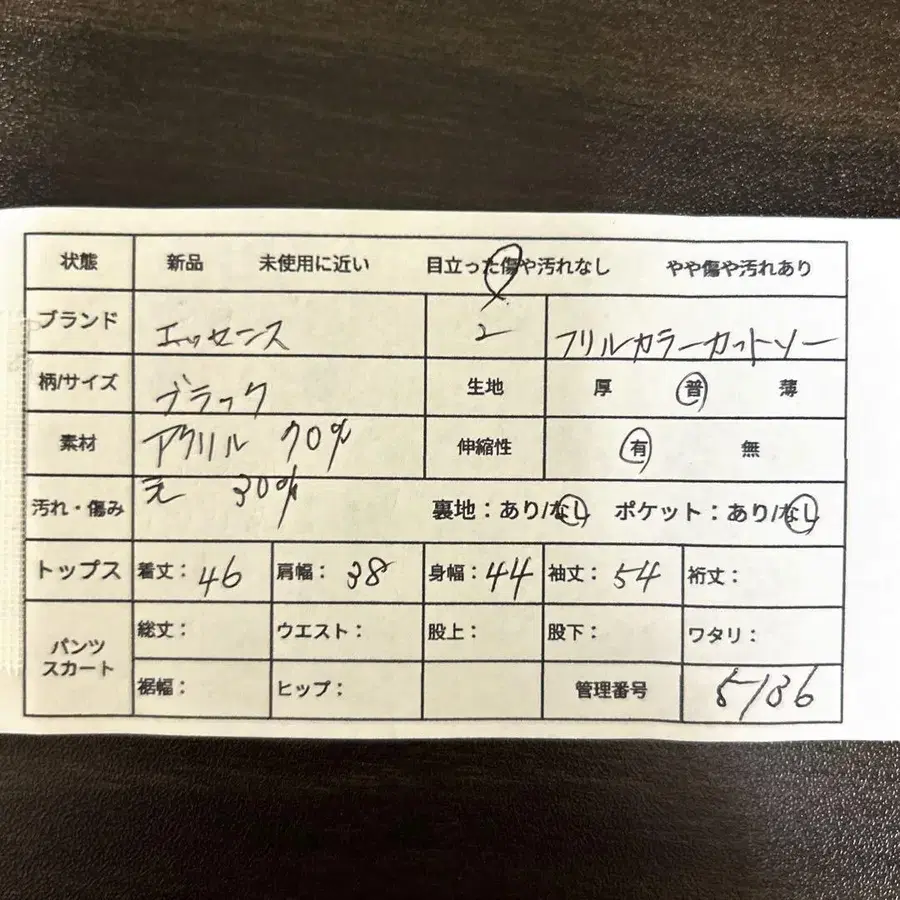 状態 新品 未使用に近い 目立った傷や汚れなし やや傷や汚れあり
ブランド エッセンス 2 フリルカラーカットソー
柄/サイズ ブラック 生地 厚 普 薄
素材 アクリル 70% 伸縮性 有 無
汚れ・傷み 毛 30% 裏地：あり/なし ポケット：あり/なし
トップス 着丈：46 肩幅：38 身幅：44 袖丈：54 裄丈：
パンツ スカート 総丈： ウエスト： 股上： 股下： ワタリ：
裾幅： ヒップ： 管理番号 5136